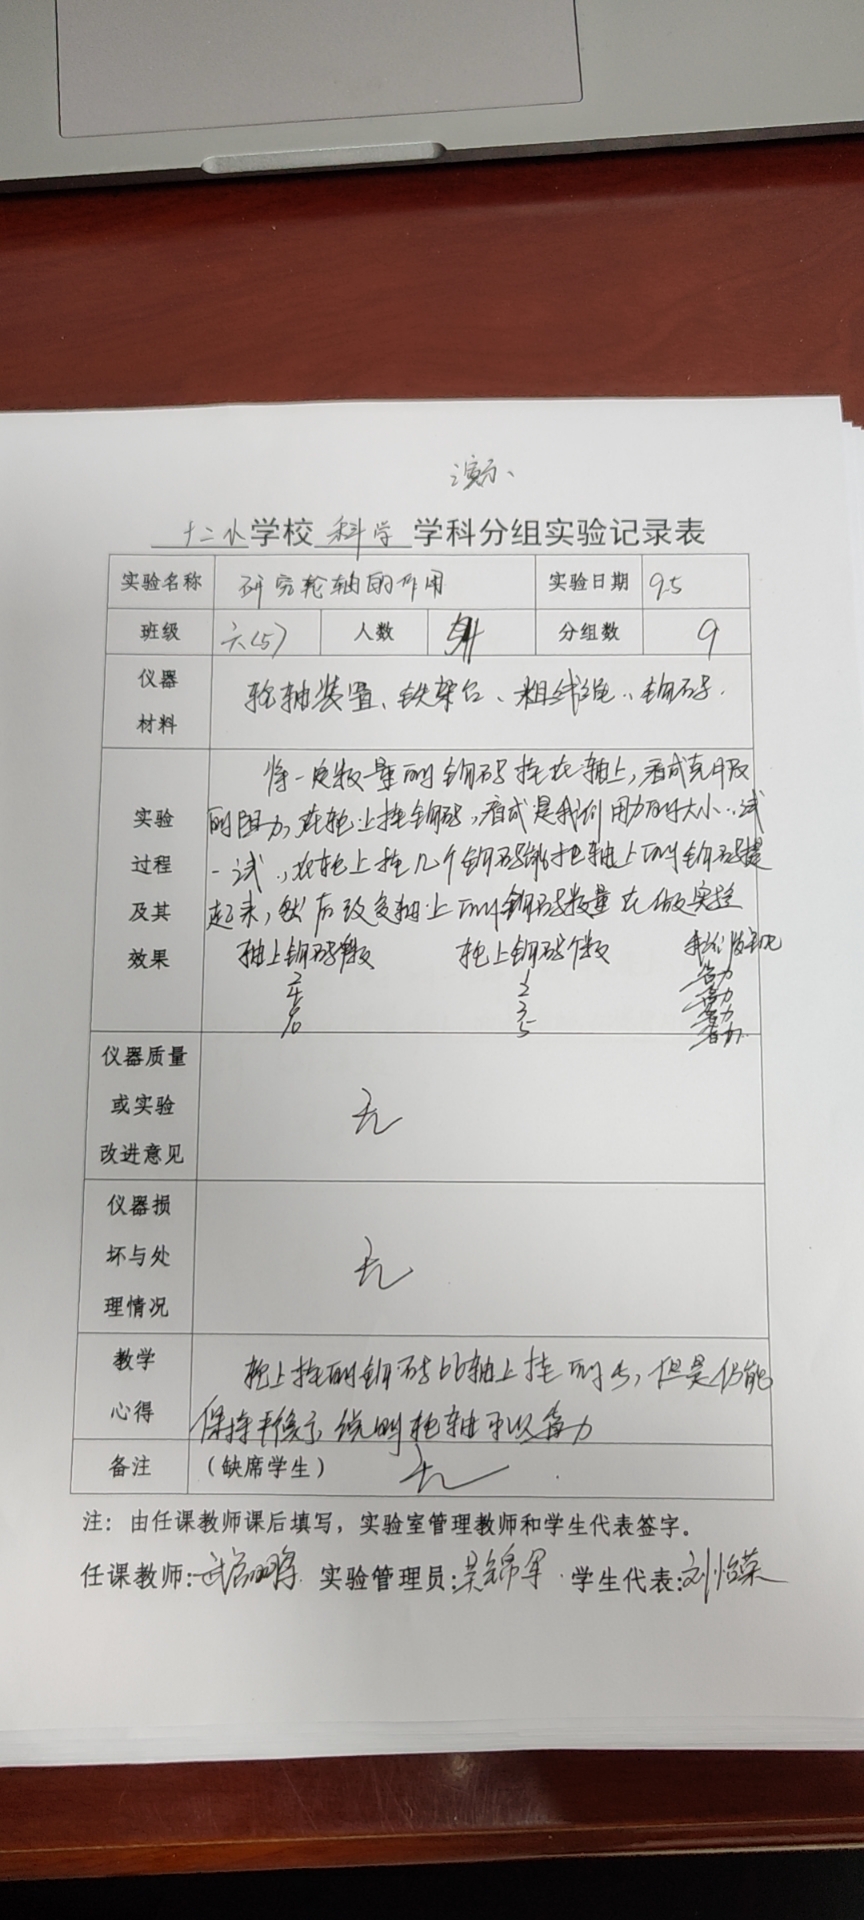 演示、
十二小学校 科学 学科分组实验记录表
实验名称 研究轮轴的作用 实验日期 9.5
班级 六(5) 人数 分组数 9
仪器
材料
轮轴装置、铁架台、粗线绳、钩码.
实验
过程
及其
效果
将一定数量的钩码挂在轴上,看成克服
的阻力,在轮上挂钩码,看成是我们用力的大小.试
一试.,在轮上挂几个钩码能把轴上的钩码提
起来,然后改变轴上的钩码数量在做实验
轴上钩码个数 轮上钩码个数 我们的发现
2 1 省力
4 2 省力
6 3 省力
10 5 省力.
仪器质量
或实验
改进意见
无
仪器损
坏与处
理情况
无
教学
心得
轮上挂的钩码比轴上挂的少,但是仍能
保持平衡,说明轮轴可以省力
备注 (缺席学生) 无
注: 由任课教师课后填写,实验室管理教师和学生代表签字。
任课教师: 实验管理员:吴锦军 学生代表:刘怡蓉